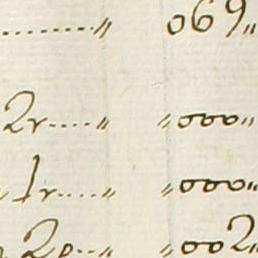 ........〃 069〃
2r.....〃 〃000〃
1r....〃 〃000〃
2e...〃 〃002〃